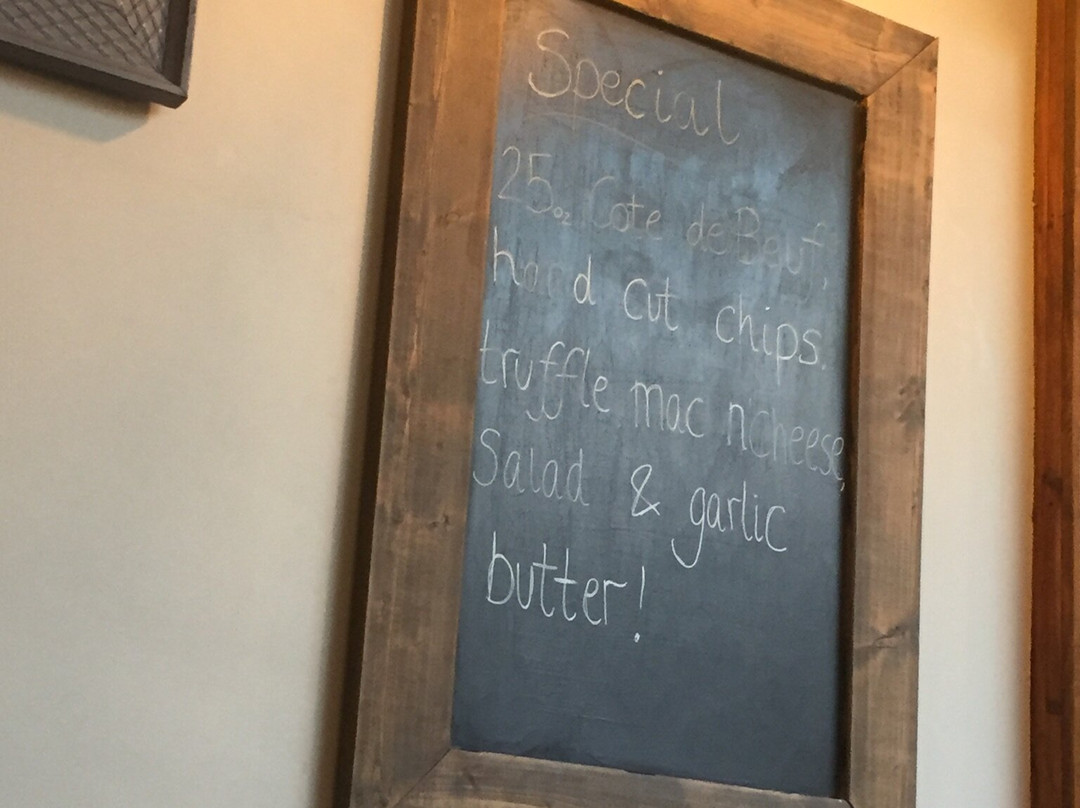 Special
25oz Cote de Beuf,
hand cut chips.
truffle mac n'Cheese,
Salad & garlic
butter!